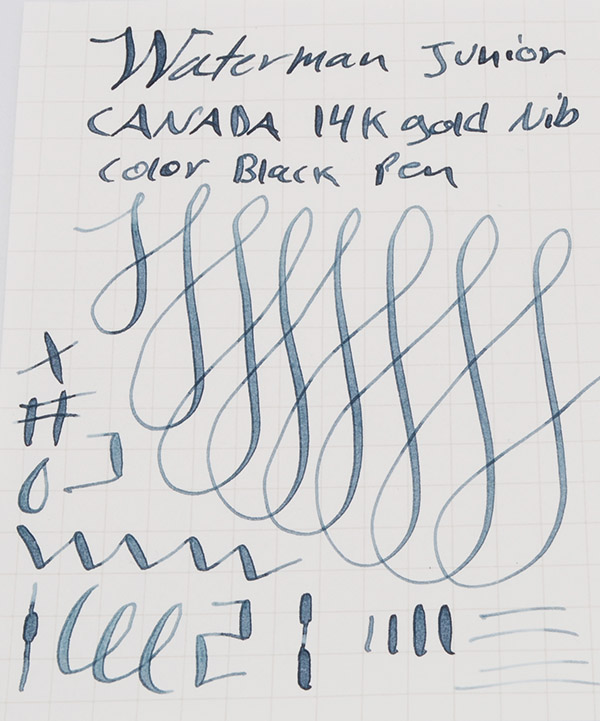 Waterman Junior
CANADA 14K gold Nib
Color Black Pen